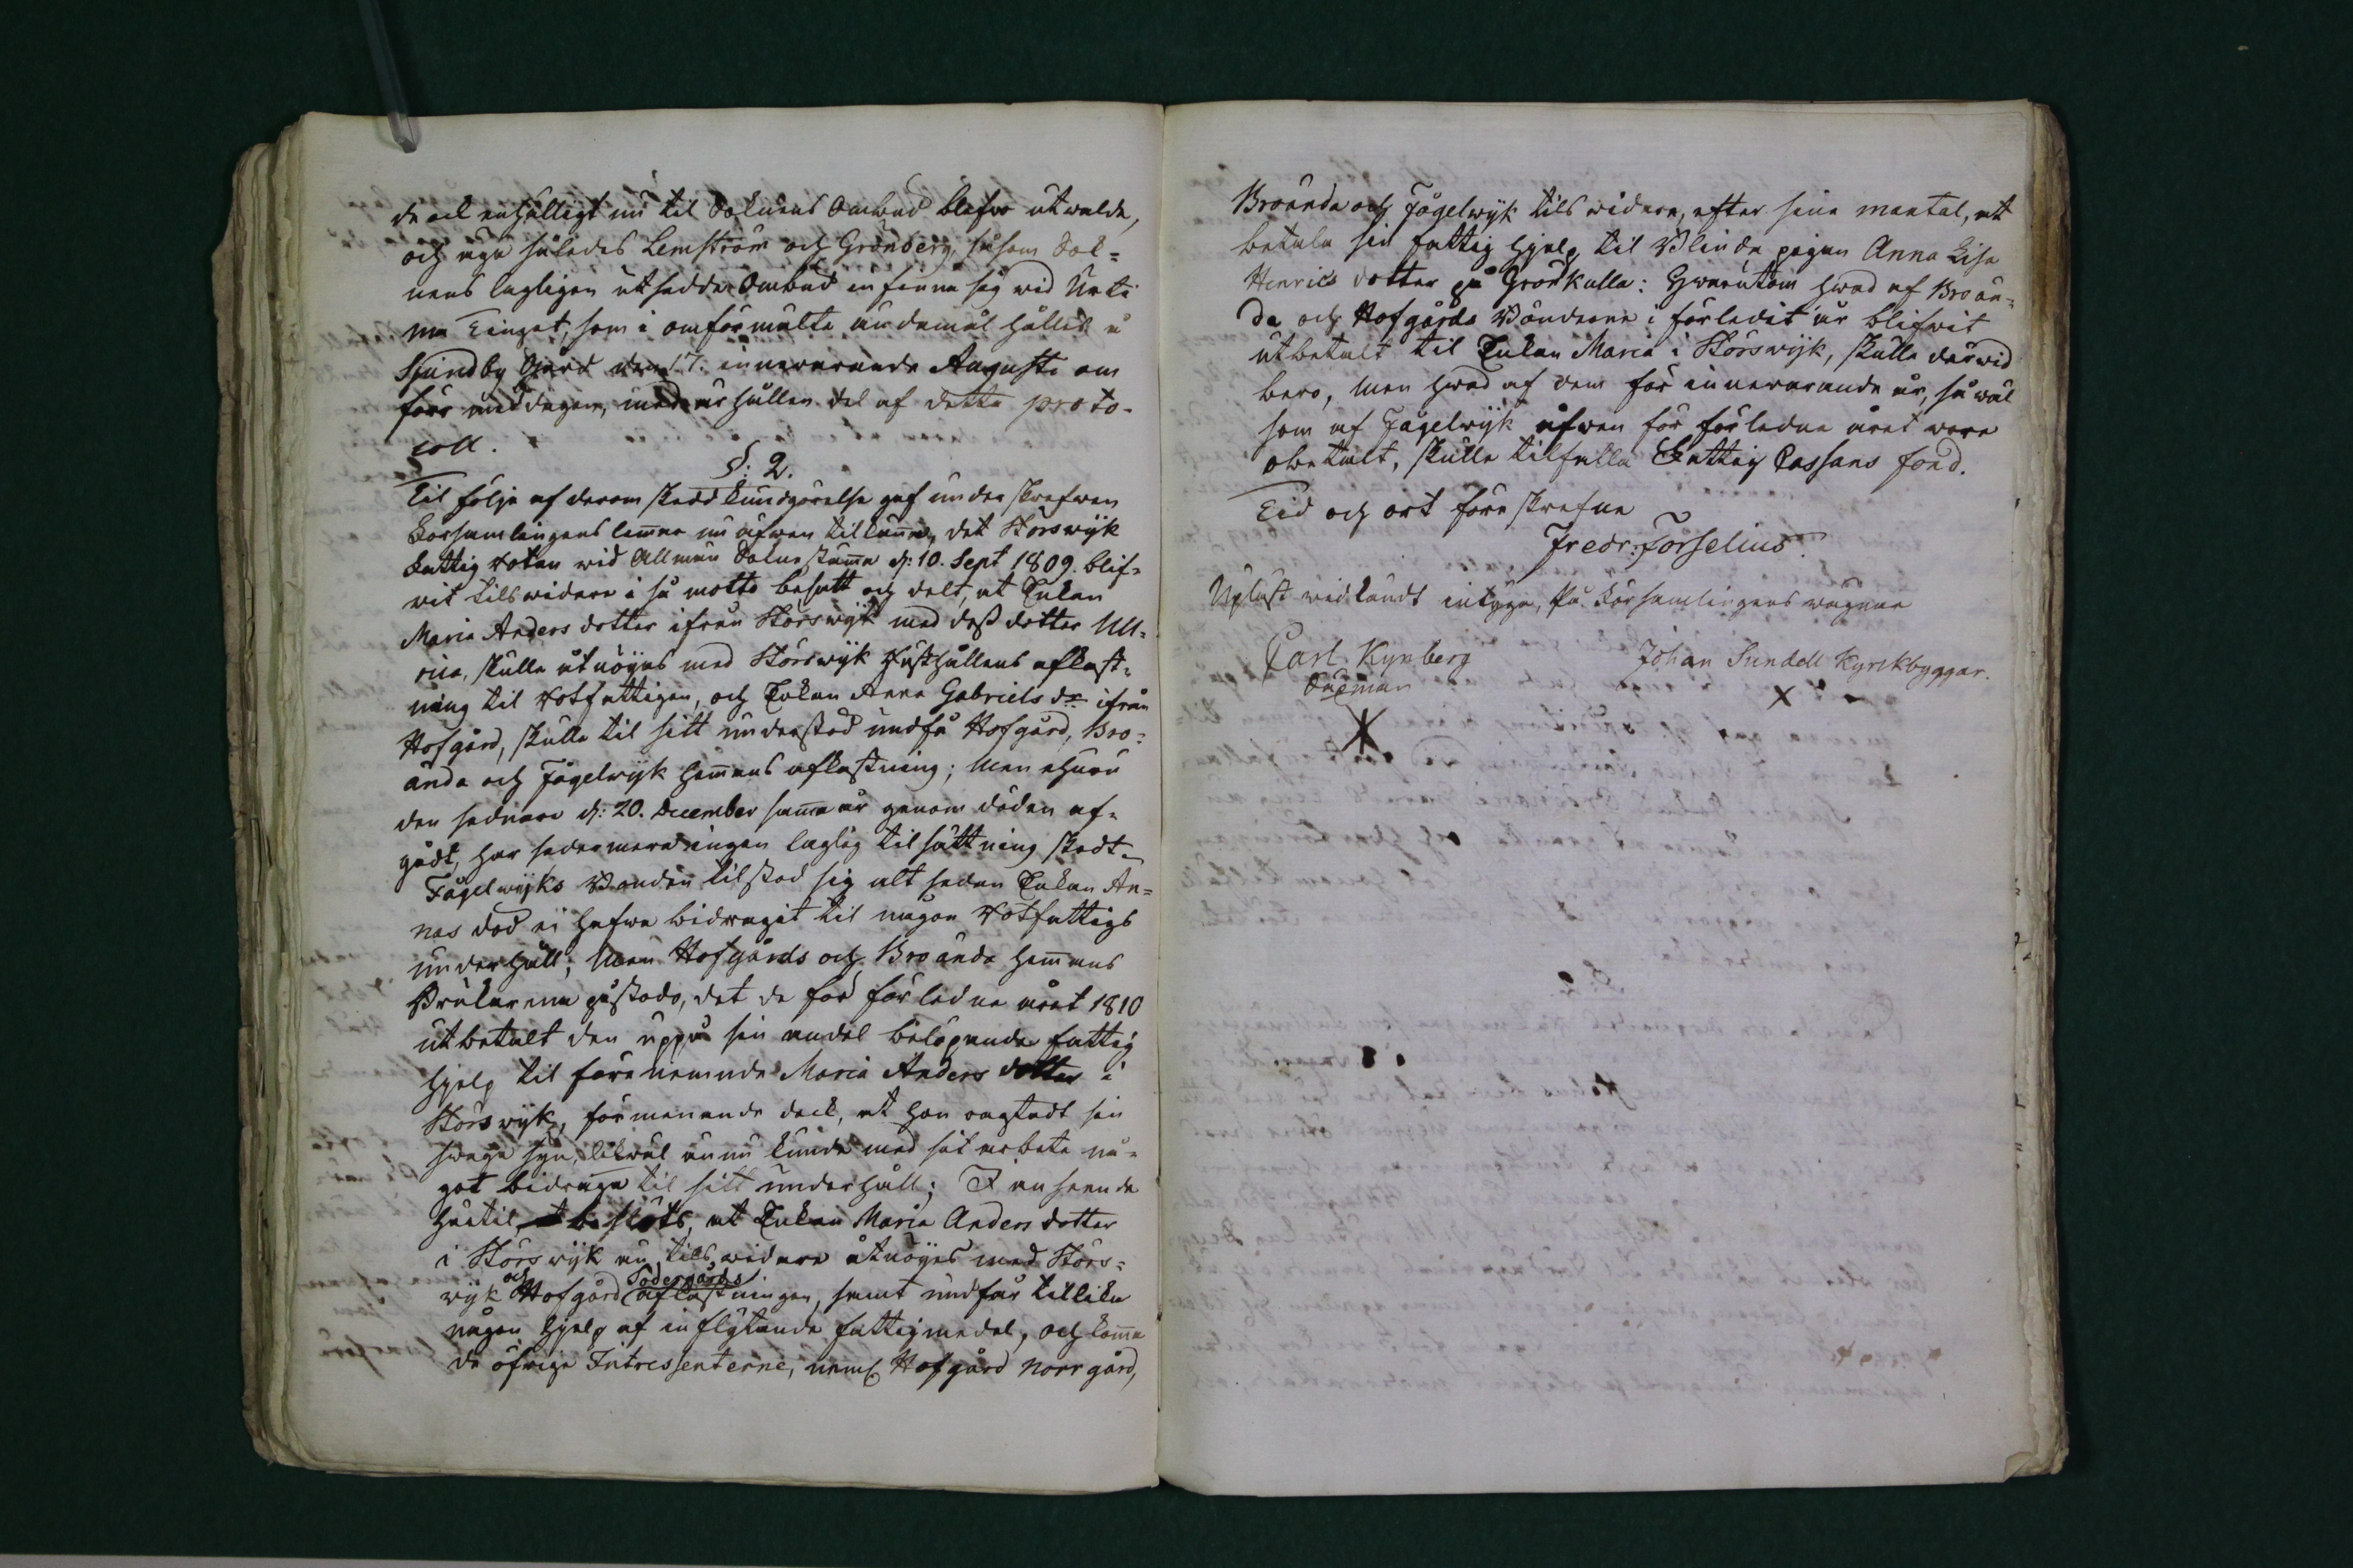 de ock enhälligt nu til Soknens Ombud blefwo utwalde,
och äga således Lemström och Grönberg, såsom Sok-
nens lagligen utsedde Ombud infinna sig wid Urti
ma Tinget, som i omförmälte ändamål hålles å
Sjundby Gård den 17. innewarande Augusti om
före middagen, med erhållen del af detta proto-
coll.
§. 2.
Til följe af derom skedd kundgörelse gaf under skrefwen
Församlingens lemmar nu äfwen tilkänna, det Störswijk
Fattig Rotan wid Allmän Soknestämma d: 10. Sept 1809. blif-
wit tilswidare i så motto besatt och delt, at Enkan
Maria Anders dotter ifrån Störswijk med dess dotter Ull-
rica, skulle åtnöjas med Störswijk Hushållens aflast-
ning til Rotfattigen, och Enkan Anna Gabriels dr ifrån
Hofgård, skulle til sitt understöd undfå Hofgård, Bro-
ända och Fågelwijk Hemmans aflastning; Men ehuru
den sednare d: 20. December samma år genom döden af-
gådt, har sedermera ingen laglig tilsättning skedt.
Fågelwijks Bonden tilstod sig alt sedan Enkan An-
nas död ej hafwa bidragit til någon Rotfattigs
underhåll; Men Hofgårds och Broända Hemmans
Brukarena påstodo, det de för förledne året 1810
utbetalt den uppå sin andel belöpande fattig
hjelp til förenemnde Maria Anders dotter i
Störswijk, förmenande dock, at hon oagtadt sin
swaga syn, likwäl ännu kunde med sit arbete nå-
got bidraga til sitt underhåll; I anseende
härtil besluts, at Enkan Maria Anders dotter
i Störswijk nu tils widare åtnöjes med Störs-
wijk och Hofgård Södergårds aflastningen, samt undfår tillika
någon hjelp af inflytande fattigmedel, och komma
de öfrige Intressenterne, neml. Hofgård Norrgård,
Broända och Fågelwijk tils widare, efter sina mantal, at
betala sin fattig hjelp til Blinda pigan Anna Lisa
Henrics dotter på Grönkulla: Hwarutom hwad af Broän-
da och Hofgårds Bönderne i förledit år blifwit
utbetalt til Enkan Maria i Störswijk, skulle derwid
bero, Men hwad af dem för innewarande år, så wäl
som af Fågelwijk äfwen för förledne året wore
obetalt, skulle tilfalla Fattig Cassans fond.
Tid och ort föreskrefne
Fredr: Forselius.
Upläst widkändt intyga, På Församlingens wägnar
Carl Kynberg
Johan Sundell Kyrckbyggar.
Sexman
X
X